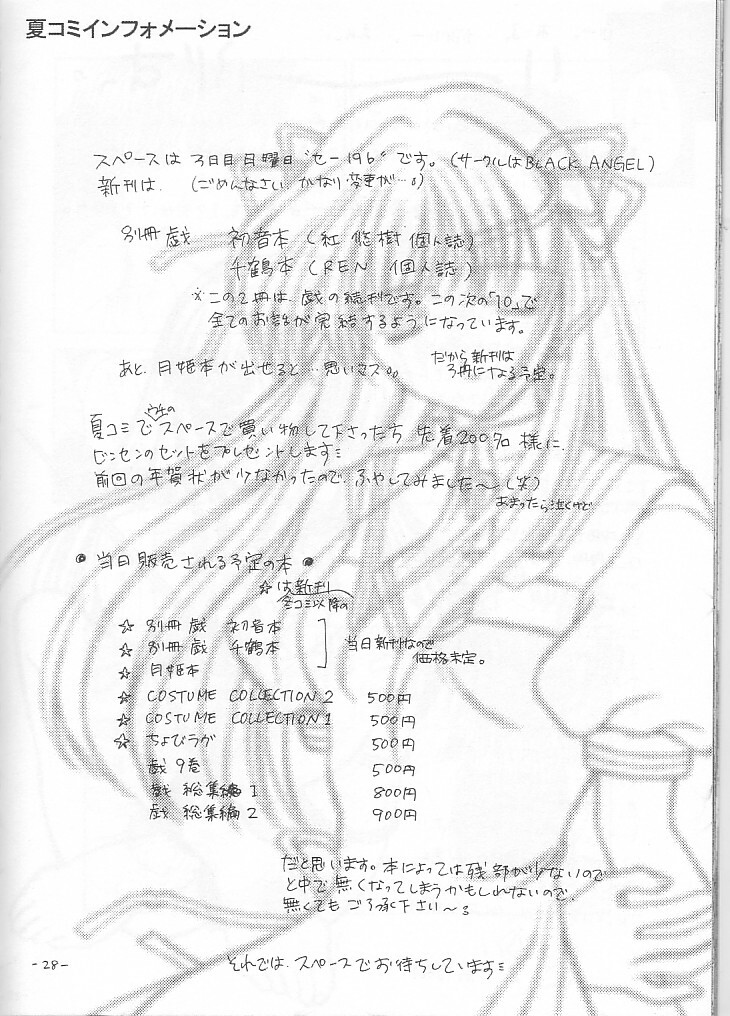 夏コミインフォメーション
スペースは3日目日曜日"セー19b"です。(サークルはBLACK ANGEL)
新刊は、(ごめんなさい、かなり変更が…。)
別冊 戯 初音本(紅 悠樹 個人誌)
千鶴本(REN 個人誌)
※この2冊は、戯の続刊です。この次の「10」で
全てのお話が完結するようになっています。
あと、月姫本が出せると…思いマス。。
だから新刊は
3冊になる予定。
ウチの
夏コミでスペースで買い物して下さった方 先着200名様に、
ビンセンのセットをプレゼントします
前回の年賀状が少なかったので、ふやしてみました〜(笑)
あまったら泣くけど
● 当日販売される予定の本 ●
☆は新刊
冬コミ以降の
☆ 別冊 戯 初音本
☆ 別冊 戯 千鶴本
☆ 月姫本
当日新刊なので
価格未定。
☆ COSTUME COLLECTION 2 500円
☆ COSTUME COLLECTION 1 500円
☆ ちょびラヴ 500円
戯 9巻 500円
戯 総集編 1 800円
戯 総集編 2 900円
だと思います。本によっては残部が少ないので
と中で無くなってしまうかもしれないので、
無くてもご了承下さい〜
それでは、スペースでお待ちしています
-28-